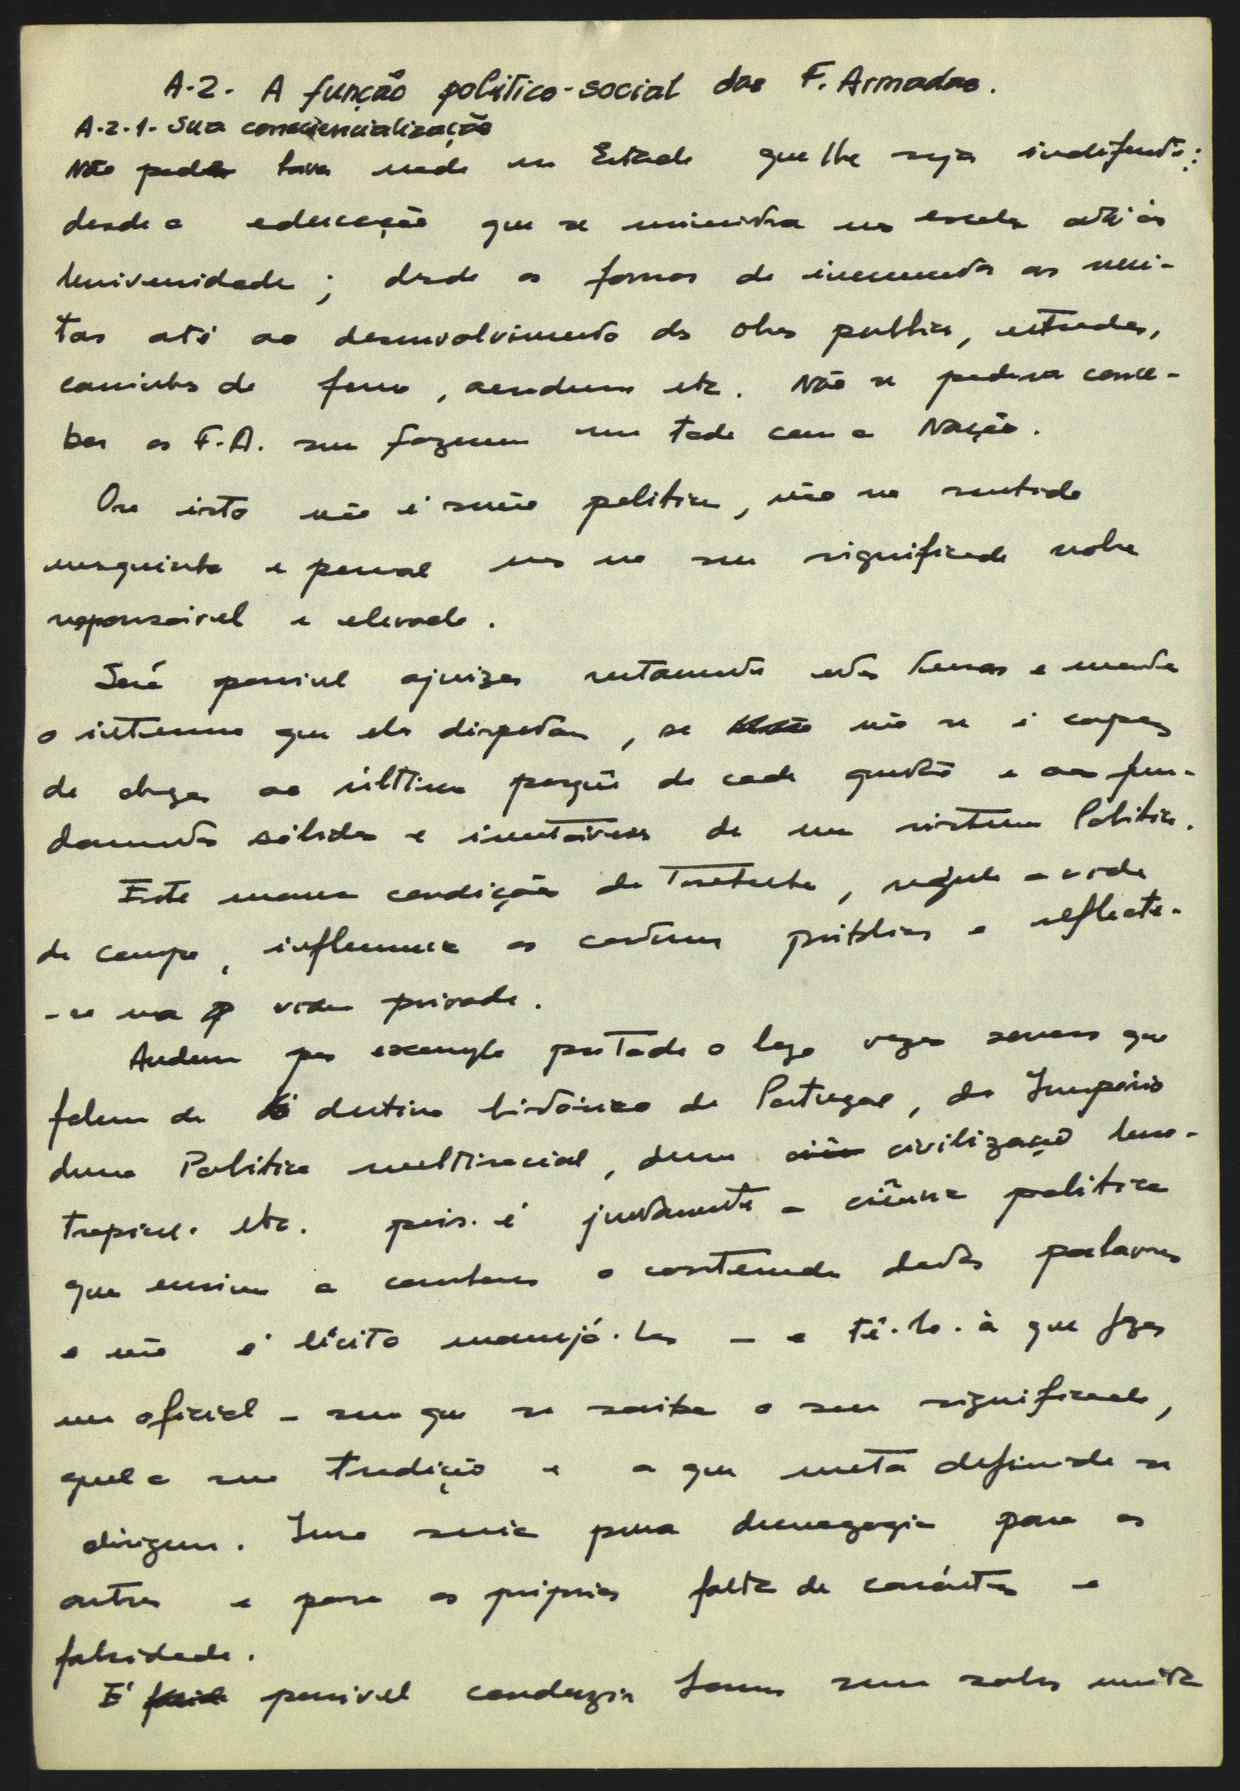 A-2- A função politico-social das F. Armadas.
A-2-1- Sua consciencialização
Não poder haver nada no Estado que lhe seja indiferente:
desde a educação que se ministra na escola até às
Universidade; desde as formas de incremento as
tas até ao desenvolvimento das obras publicas, estradas,
caminhos de ferro, etc. Não se poderia conce-
ber as F.A. sem fazerem um todo com a Nação.
Ora isto não é senão politica, não no sentido
mesquinho e pessoal mas no seu significado nobre
responsável e elevado.
Será possivel ajuizar rectamente estes temas e mesmo
o interesse que eles despertam, se não se é capaz
de chegar ao último porquê de cada questão e aos fun-
damentos sólidos e imutáveis de um sistema Politico.
Este condição de, regula a vida
do campo, influencia os costumes públicos e reflecte-
-se na vida privada.
Andam por exemplo portodo o lado vozes sonoras que
falam do destino histórico de Portugal, do Império
duma Politica multiracial, duma civilização luso-
tropical. etc. pois. é justamente a ciência politica
que ensina a conhecer o conteúdo destas palavras
e não é lícito manejá-las - e tê-lo-à que fazer
um oficial - sem que se saiba o seu significado,
qual a sua tradição e a que meta definida se
dirigem. Isso seria pura demagogia para os
outros e para os próprios falta de carácter e
falsidade.
É possivel conduzir homens sem saber muita